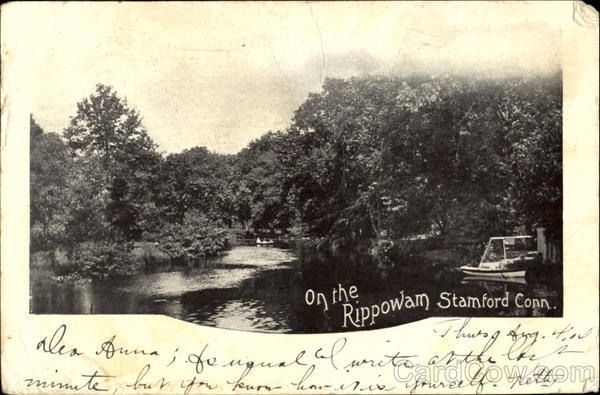 On the
Rippowam Stamford Conn.
Thurs Aug. 4,
Dea Anna; As usual I write at the last
minute, but you know how it is yourself.
CardCow.com